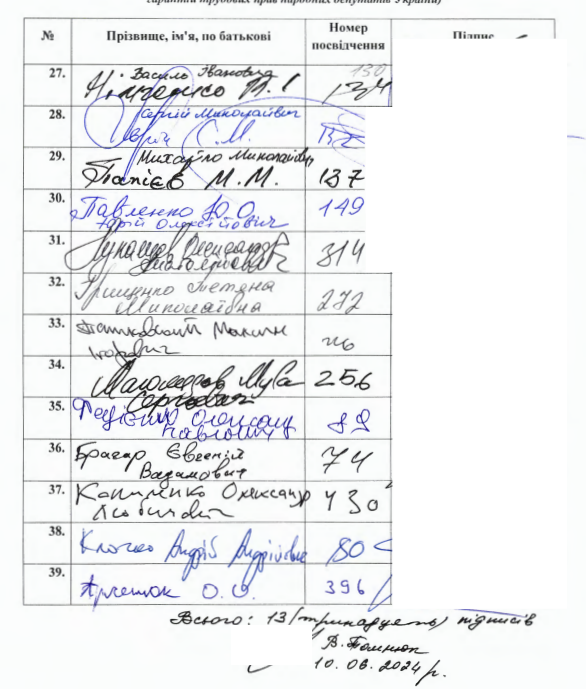 гарантій трудових прав народних депутатів України)
№ Прізвище, ім'я, по батькові Номер посвідчення Підпис
27. Василь Іванович
В. І. 134
130
28. Сергій Миколайович
С.М.
29. Михайло Миколайович
Папієв М.М. 137
30. Павленко Ю.О. 149
Юрій Олексійович
31. Лукашев Олександр 314
Анатолійович
32. Грищенко Тетяна 272
Миколаївна
33. Максим
Ігорович
34. Магомедов Муса 256
Сергоєвич
35. Федієнко Олександр 82
Павлович
36. Брагар Євгеній 74
Вадимович
37. Копиленко Олександр 430
Любимович
38. Клочко Андрій Андрійович 80
39. О. О. 396
Всього: 13 (тринадцять) підписів
10.06.2024 р.